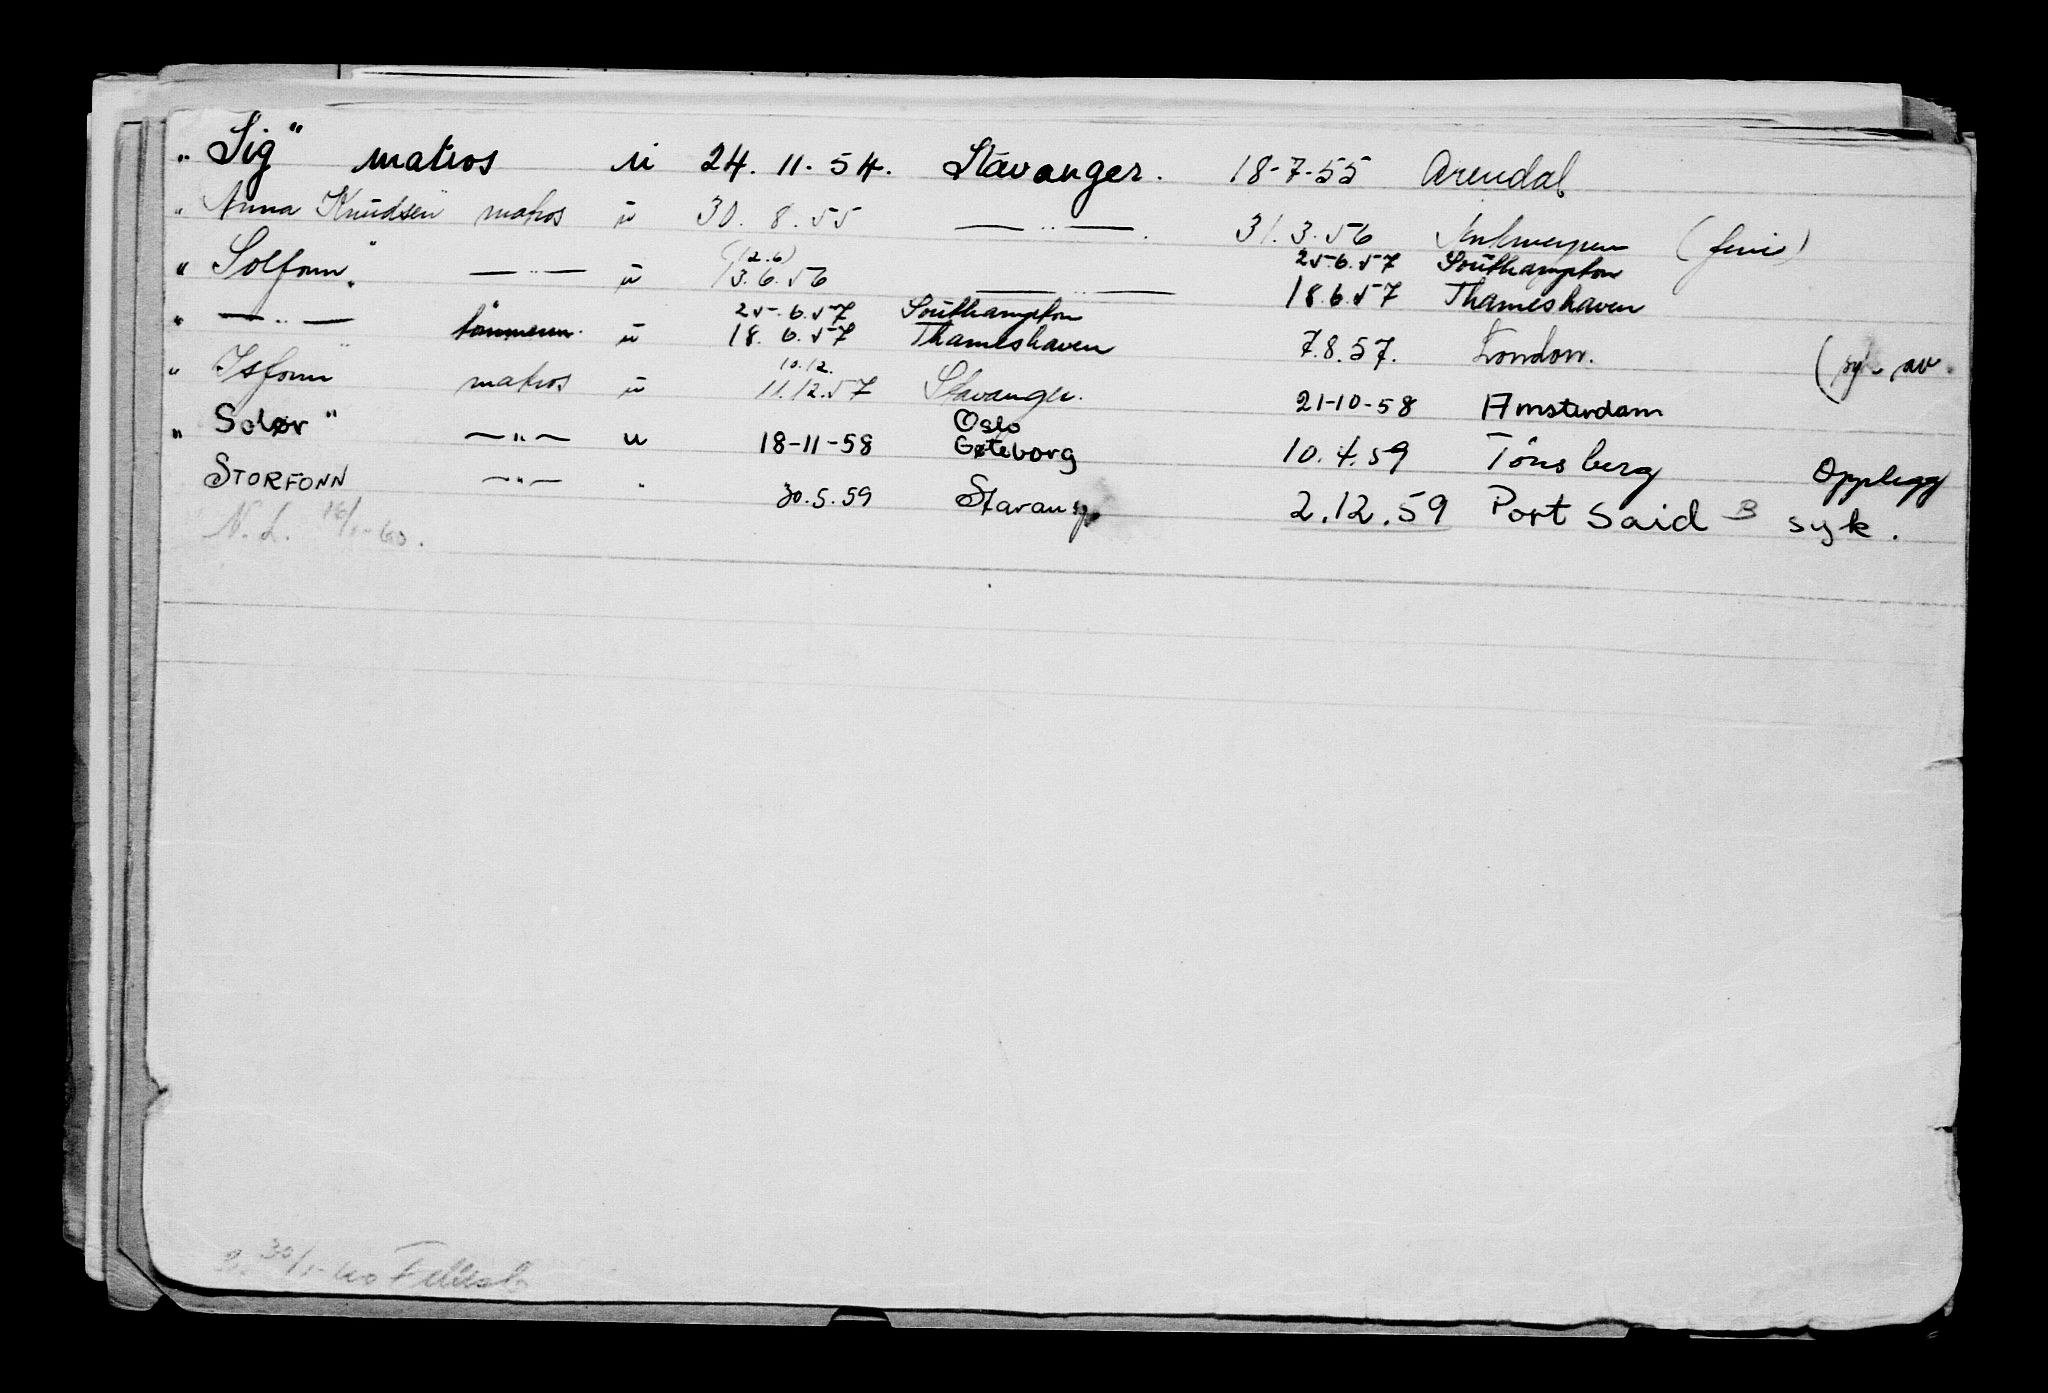 „ Sig" matros u 24. 11. 54. Stavanger. 18-7-55 Arendal
„ Anna Knudsen matros u 30. 8. 55 — „ — . 31. 3. 56 Antwerpen (ferie)
„ Solfonn" — „ — u (12.6) 13.6.56 — „ — 25.6.57 Southampton 18.6.57 Thameshaven
„ — „ — tømmerm. u 25.6.57 Southampton 18. 6.57 Thameshaven 7.8.57. London. (syk av
„ Isfonn" matros u 10.12. 11.12.57 Stavanger. 21-10-58 Amsterdam
„ Solør" — „ — u 18-11-58 Oslo Gøteborg 10.4.59 Tönsberg Opplegg
STORFONN — „ — " 30.5.59 Stavang 2.12.59 Port Said B syk.
N. L. 16/1-60.
30/1-60